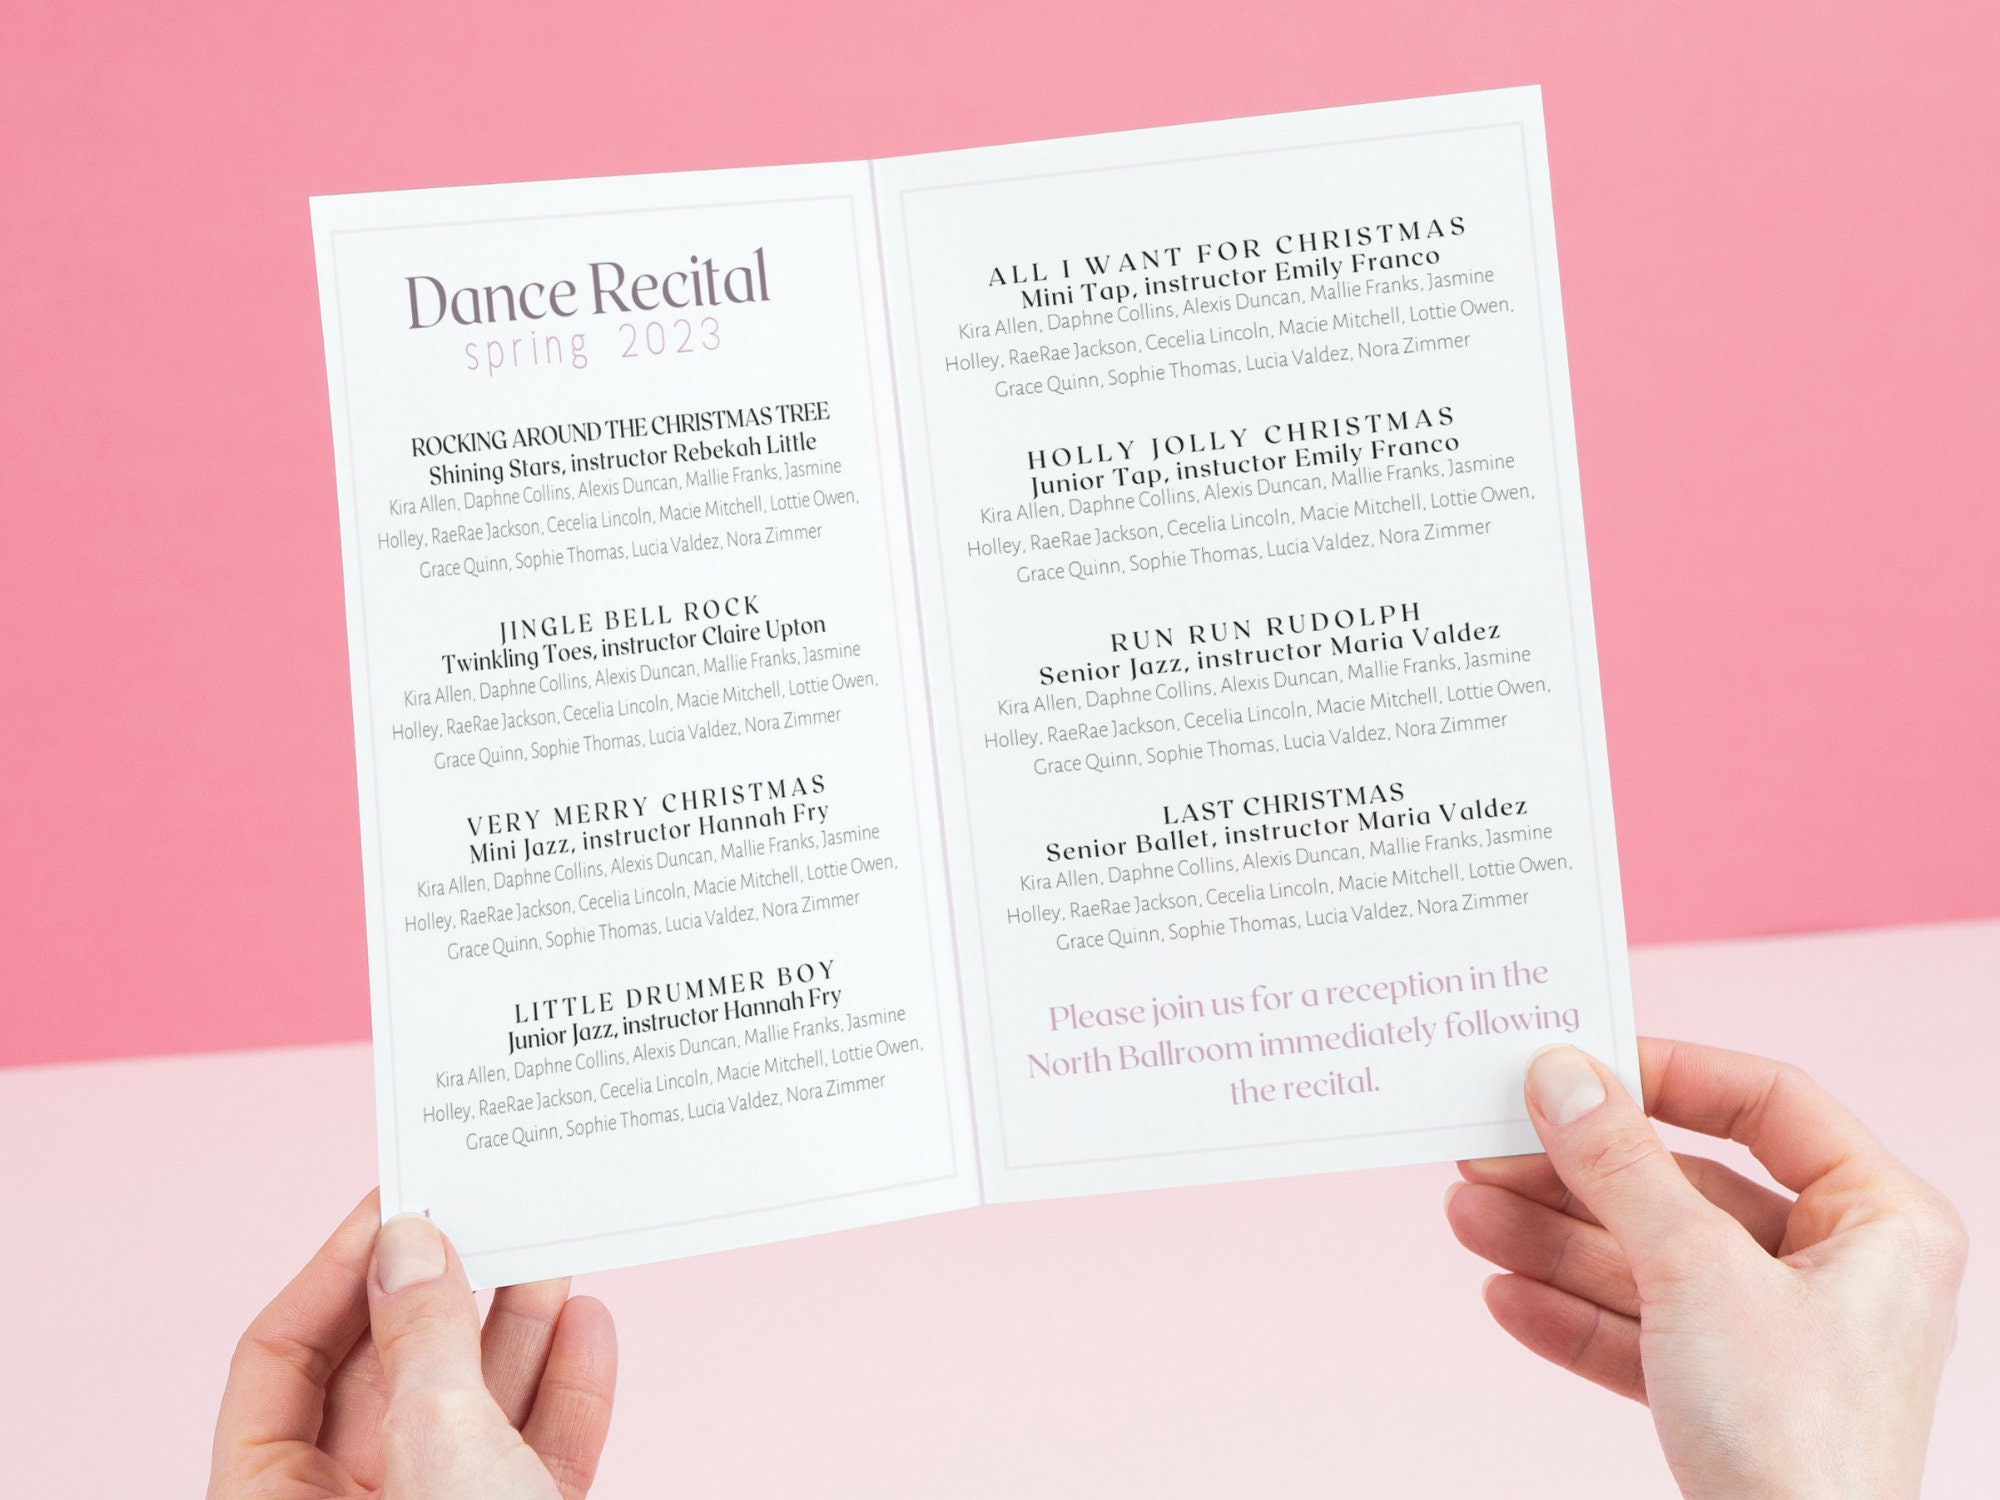 Dance Recital
spring 2023
ROCKING AROUND THE CHRISTMAS TREE
Shining Stars, instructor Rebekah Little
Kira Allen, Daphne Collins, Alexis Duncan, Mallie Franks, Jasmine
Holley, RaeRae Jackson, Cecelia Lincoln, Macie Mitchell, Lottie Owen,
Grace Quinn, Sophie Thomas, Lucia Valdez, Nora Zimmer
JINGLE BELL ROCK
Twinkling Toes, instructor Claire Upton
Kira Allen, Daphne Collins, Alexis Duncan, Mallie Franks, Jasmine
Holley, RaeRae Jackson, Cecelia Lincoln, Macie Mitchell, Lottie Owen,
Grace Quinn, Sophie Thomas, Lucia Valdez, Nora Zimmer
VERY MERRY CHRISTMAS
Mini Jazz, instructor Hannah Fry
Kira Allen, Daphne Collins, Alexis Duncan, Mallie Franks, Jasmine
Holley, RaeRae Jackson, Cecelia Lincoln, Macie Mitchell, Lottie Owen,
Grace Quinn, Sophie Thomas, Lucia Valdez, Nora Zimmer
LITTLE DRUMMER BOY
Junior Jazz, instructor Hannah Fry
Kira Allen, Daphne Collins, Alexis Duncan, Mallie Franks, Jasmine
Holley, RaeRae Jackson, Cecelia Lincoln, Macie Mitchell, Lottie Owen,
Grace Quinn, Sophie Thomas, Lucia Valdez, Nora Zimmer
ALL I WANT FOR CHRISTMAS
Mini Tap, instructor Emily Franco
Kira Allen, Daphne Collins, Alexis Duncan, Mallie Franks, Jasmine
Holley, RaeRae Jackson, Cecelia Lincoln, Macie Mitchell, Lottie Owen,
Grace Quinn, Sophie Thomas, Lucia Valdez, Nora Zimmer
HOLLY JOLLY CHRISTMAS
Junior Tap, instuctor Emily Franco
Kira Allen, Daphne Collins, Alexis Duncan, Mallie Franks, Jasmine
Holley, RaeRae Jackson, Cecelia Lincoln, Macie Mitchell, Lottie Owen,
Grace Quinn, Sophie Thomas, Lucia Valdez, Nora Zimmer
RUN RUN RUDOLPH
Senior Jazz, instructor Maria Valdez
Kira Allen, Daphne Collins, Alexis Duncan, Mallie Franks, Jasmine
Holley, RaeRae Jackson, Cecelia Lincoln, Macie Mitchell, Lottie Owen,
Grace Quinn, Sophie Thomas, Lucia Valdez, Nora Zimmer
LAST CHRISTMAS
Senior Ballet, instructor Maria Valdez
Kira Allen, Daphne Collins, Alexis Duncan, Mallie Franks, Jasmine
Holley, RaeRae Jackson, Cecelia Lincoln, Macie Mitchell, Lottie Owen,
Grace Quinn, Sophie Thomas, Lucia Valdez, Nora Zimmer
Please join us for a reception in the
North Ballroom immediately following
the recital.